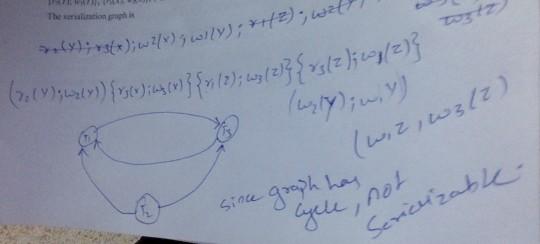 The serialization graph is
r3(x); w2(y); w1(y); r1(z); w2(
w3(z)
(r2(y); w2(y)) {r3(y); w3(y)} {r1(z); w3(z)} {r3(z); w1(z)}
(w2(y); w1 y)
(w1 z, w3(z)
T1
T3
T2
since graph has
cycle, not
serializable.